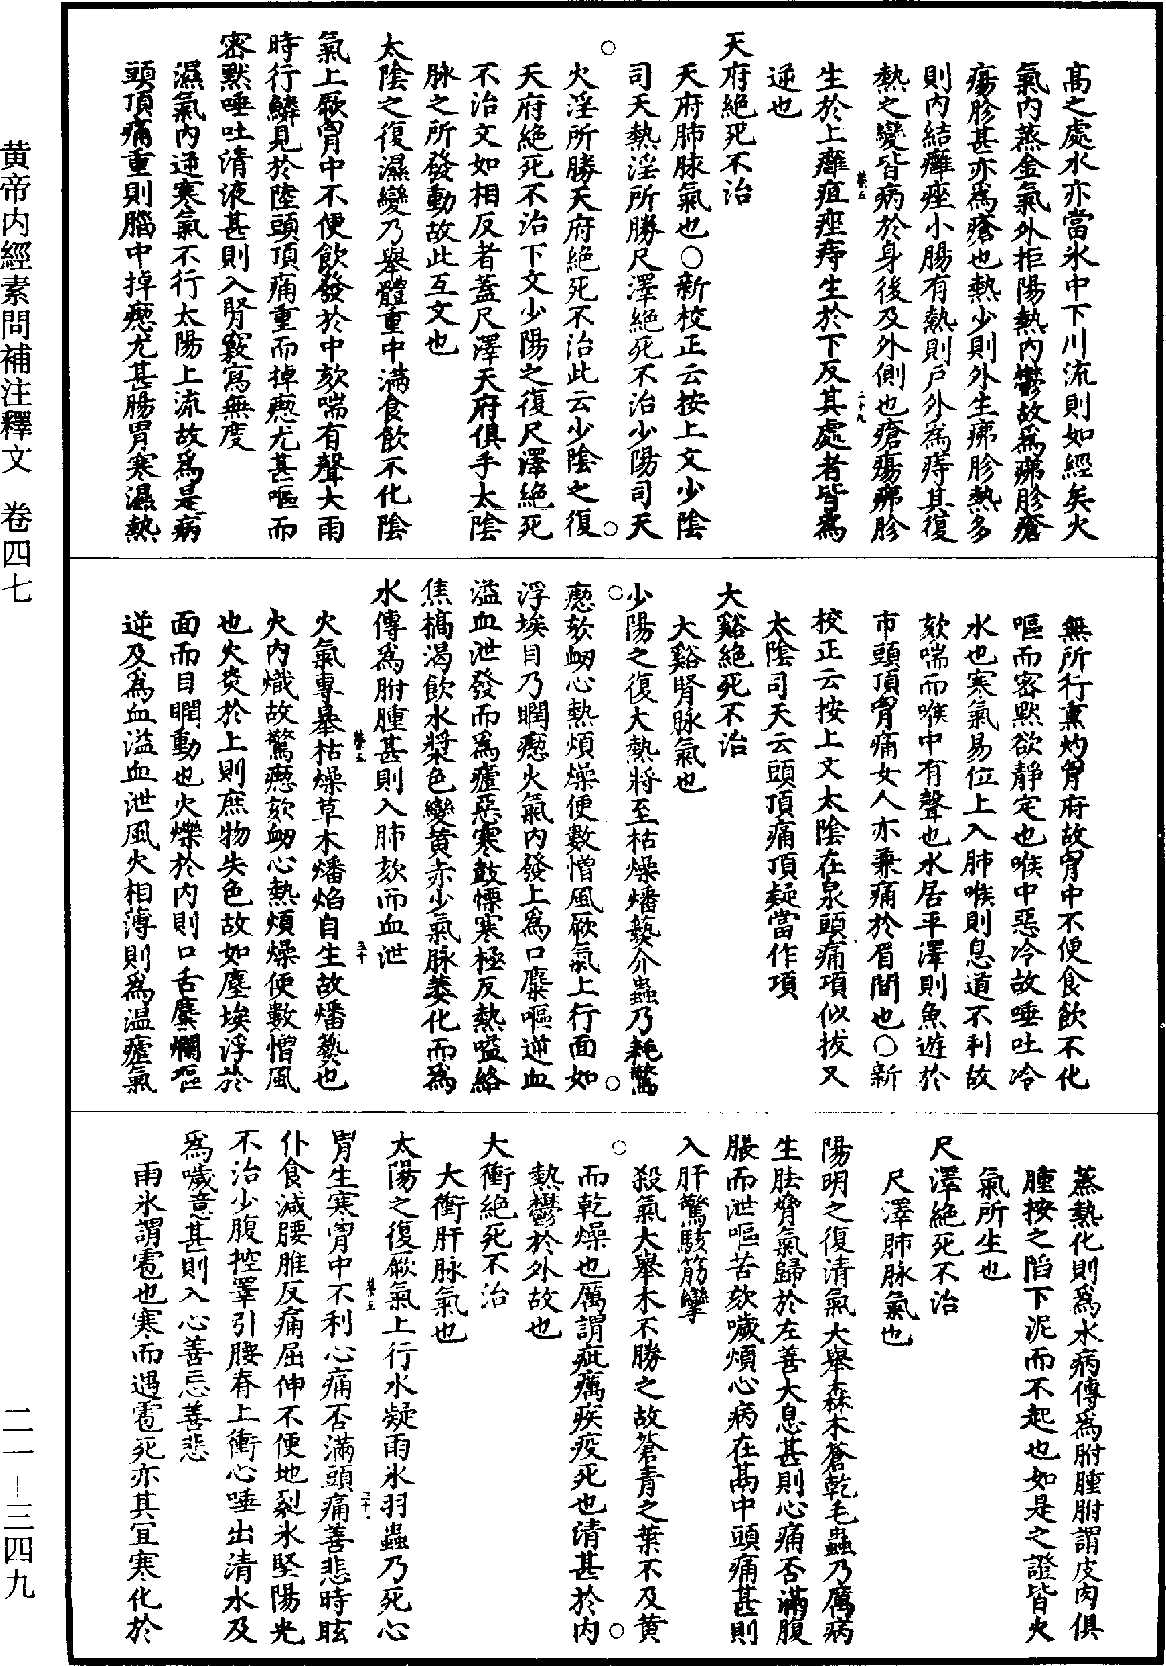 高之處水亦當氷中下川流則如經矣火
氣內蒸金氣外拒陽熱內鬱故爲疿胗瘡
瘍胗甚亦爲瘡也熱少則外生疿胗熱多
則內結癰痤小腸有熱則戶外爲痔其復
熱之變皆病於身後及外側也瘡瘍疿胗
生於上癰疽痤痔生於下反其處者皆爲
逆也
天府絕死不治
天府肺脉氣也○新校正云按上文少陰
司天熱淫所勝尺澤絕死不治少陽司天
火淫所勝天府絕死不治此云少陰之復
天府絕死不治下文少陽之復尺澤絕死
不治文如相反者蓋尺澤天府俱手太陰
脉之所發動故此互文也
太陰之復濕變乃舉體重中滿食飲不化陰
氣上厥胷中不便飲發於中欬喘有聲大雨
時行鱗見於陸頭頂痛重而掉瘛尤甚嘔而
密默唾吐清液甚則入腎竅寫無度
濕氣內逆寒氣不行太陽上流故爲是病
頭頂痛重則腦中掉瘛尤甚腸胃寒濕熱
無所行熏灼胷府故胷中不便食飲不化
嘔而密默欲靜定也喉中惡冷故唾吐冷
水也寒氣易位上入肺喉則息道不利故
欬喘而喉中有聲也水居平澤則魚遊於
市頭頂胷痛女人亦兼痛於眉間也○新
校正云按上文太陰在泉頭痛項似拔又
太陰司天云頭頂痛頂疑當作項
大谿絕死不治
大谿腎脉氣也
少陽之復大熱將至枯燥燔爇介蟲乃耗驚
瘛欬衂心熱煩燥便數憎風厥氣上行面如
浮埃目乃瞤瘛火氣內發上爲口糜嘔逆血
溢血泄發而爲瘧惡寒鼓慄寒極反熱嗌絡
焦槁渴飲水漿色變黃赤少氣脉萎化而爲
水傳爲胕腫甚則入肺欬而血泄
火氣專暴枯燥草木燔焰自生故燔爇也
火內熾故驚瘛欬衂心熱煩燥便數憎風
也火炎於上則庶物失色故如塵埃浮於
面而目瞤動也火爍於內則口舌糜爛嘔
逆及爲血溢血泄風火相薄則爲溫瘧氣
蒸熱化則爲水病傳爲胕腫胕謂皮肉俱
腫按之陷下泥而不起也如是之證皆火
氣所生也
尺澤絕死不治
尺澤肺脉氣也
陽明之復清氣大舉森木蒼乾毛蟲乃厲病
生胠脅氣歸於左善大息甚則心痛否滿腹
脹而泄嘔苦欬噦煩心病在鬲中頭痛甚則
入肝驚駭筋攣
殺氣大舉木不勝之故蒼青之葉不及黃
而乾燥也厲謂疵癘疾疫死也清甚於內
熱鬱於外故也
大衝絕死不治
大衝肝脉氣也
太陽之復厥氣上行水凝雨氷羽蟲乃死心
胃生寒胷中不利心痛否滿頭痛善悲時眩
仆食減腰脽反痛屈伸不便地裂氷堅陽光
不治少腹控睪引腰脊上衝心唾出清水及
爲噦意甚則入心善忘善悲
雨氷謂雹也寒而遇雹死亦其宜寒化於
黄帝内經素問補注釋文 卷四七
二一-三四九